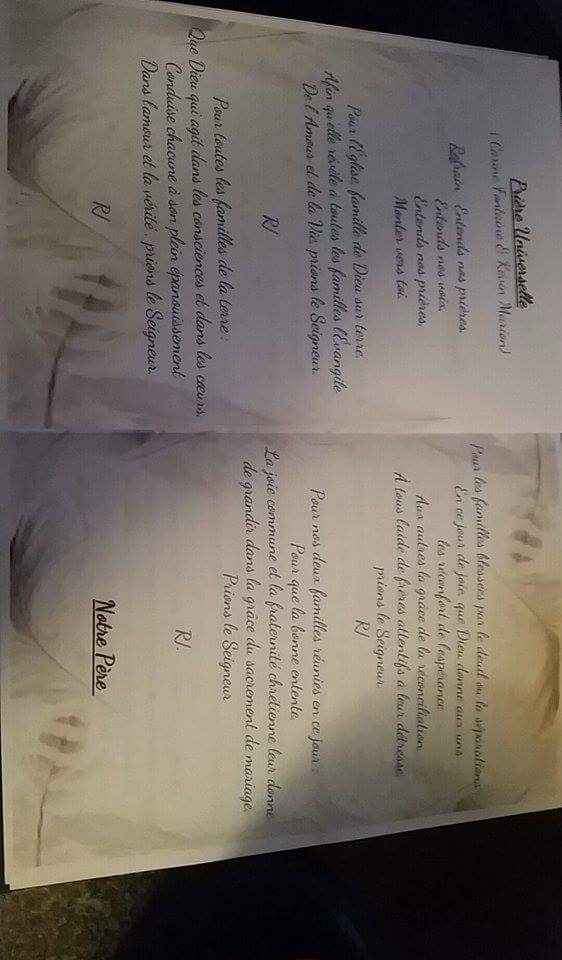 Prière Universelle
( Corine Fontaine & Karen Marion)
Refrain : Entends nos prières,
Entends nos voix,
Entends nos prières,
Monter vers toi.
Pour l'Église, famille de Dieu sur terre,
Afin qu'elle révèle à toutes les familles l'Évangile
De l'Amour et de la Vie, prions le Seigneur.
R/
Pour toutes les familles de la terre :
Que Dieu qui agit dans les consciences et dans les cœurs,
Conduise chacune à son plein épanouissement
Dans l'amour et la vérité ; prions le Seigneur.
R/
Pour les familles blessées par le deuil ou la séparations :
En ce jour de joie, que Dieu donne aux uns
les réconfort de l'espérance
Aux autres la grâce de la réconciliation
À tous l'aide de frères attentifs à leur détresse,
prions le Seigneur
R/
Pour nos deux familles réunies en ce jour :
Pour que la bonne entente,
La joie commune et la fraternité chrétienne leur donne
de grandir dans la grâce du sacrement de mariage,
Prions le Seigneur
R/.
Notre Père